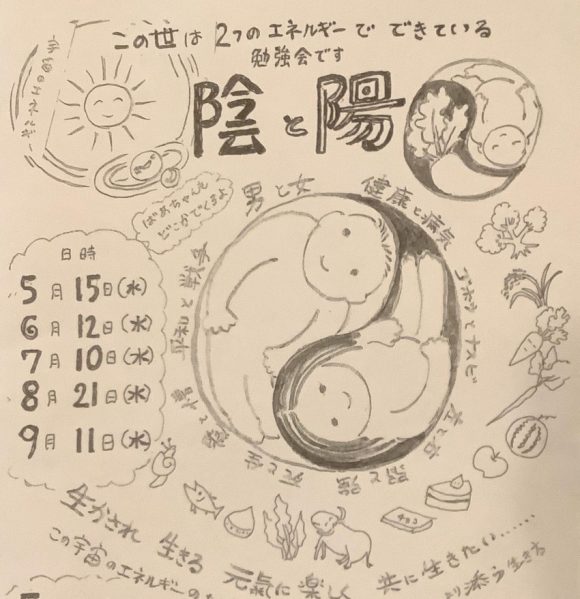 この世は2つのエネルギーでできている
勉強会です
陰と陽
宇宙のエネルギー
ばあちゃんも
どこかでくるよ
男と女
健康と病気
ゴボウとナスビ
左と右
陰と陽
死と生
愛と憎
平和と戦争
日時
5月15日(水)
6月12日(水)
7月10日(水)
8月21日(水)
9月11日(水)
チョコ
生かされ 生きる
元氣に楽しく
共に生きたい……
この宇宙のエネルギーの
り添う生き方